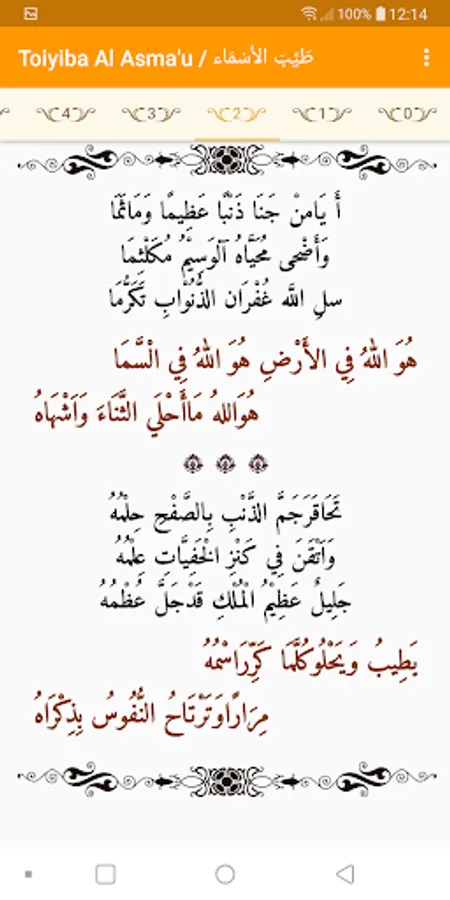 100% 12:14
Toiyiba Al Asma'u / طَيِّبَ الأَسْمَاء
4 3 2 1 0
أَ يَامنْ جَنَا ذَنْبًا عَظِيمًا وَمَاثَمَا
وَأَضْحى مُحَيَّاهُ آلوَسِيْمُ مُكَلْثِمَا
سلِ اللَّه غُفْرَان الذُّنُوَابِ تَكَرُّمَا
هُوَ اللهُ فِي الأَرْضِ هُوَ اللهُ فِيْ الْسَّمَا
هُوَاللهُ مَاأَحْلَي الثَّنَاءَ وَاَشْهَاهُ
تَحَاقَرَجَمَّ الذَّنْبِ بِالصَّفْحِ حِلْمُهُ
وَاَتْقَنَ فِي كَنْزِ الْخَفِيَّاتِ عِلْمُهُ
جَلِيلٌ عَظِيْمُ الْمُلْكِ قَدْجَلَّ عُظْمُهُ
يَطِيبُ وَيَحْلُوكُلَّمَا كَرِّرَاسْمُهُ
مِرَارًاوَتَرْتَاحُ النُّفُوسُ بِذِكْرَاهُ